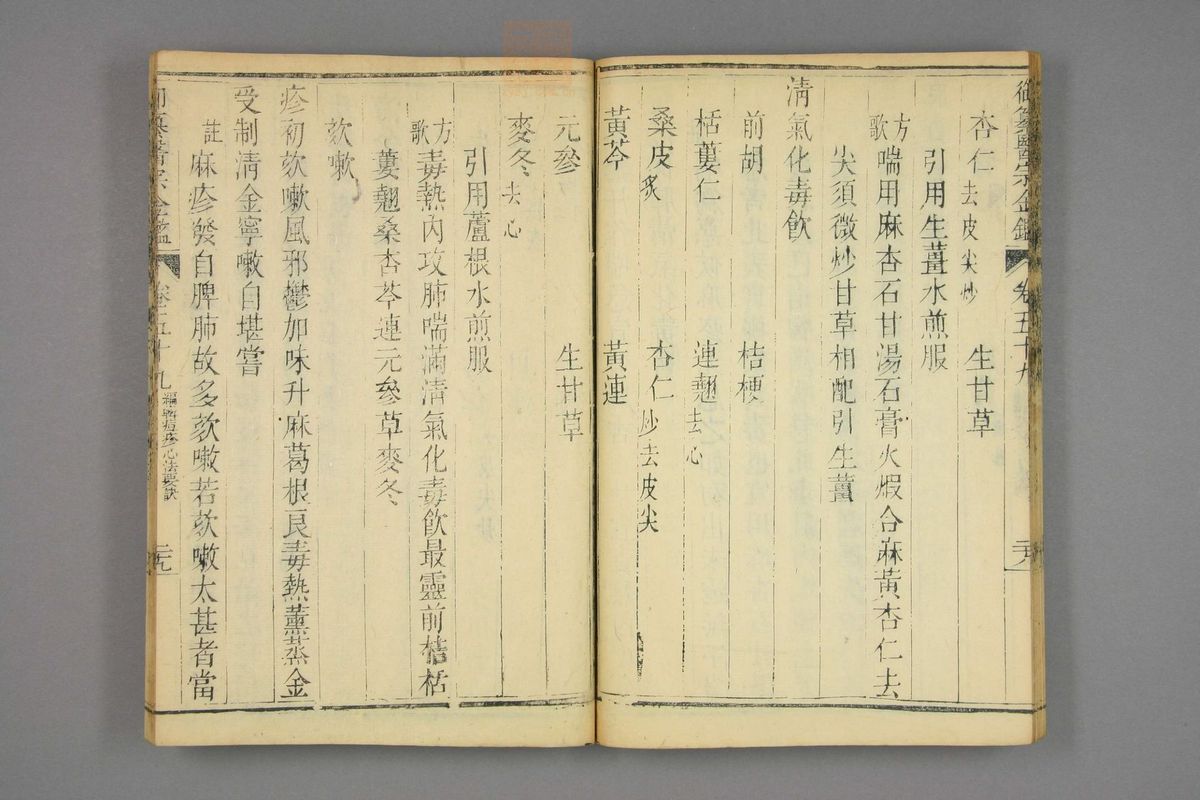 御纂醫宗金鑑 卷五十九 二十八
杏仁去皮尖炒 生甘草
引用生薑水煎服
方歌 喘用麻杏石甘湯石膏火煆合麻黃杏仁去
尖須微炒甘草相配引生薑
清氣化毒飲
前胡 桔梗
栝蔞仁 連翹去心
桑皮炙 杏仁炒去皮尖
黃芩 黃連
元參 生甘草
麥冬去心
引用蘆根水煎服
方歌 毒熱內攻肺喘滿清氣化毒飲最靈前桔栝
蔞翹桑杏芩連元參草麥冬
欬嗽
疹初欬嗽風邪鬱加味升麻葛根良毒熱薰蒸金
受制清金寧嗽自堪嘗
註 麻疹發自脾肺故多欬嗽若欬嗽太甚者當
御纂醫宗金鑑 卷五十九 編輯痘疹心法要訣 二十九